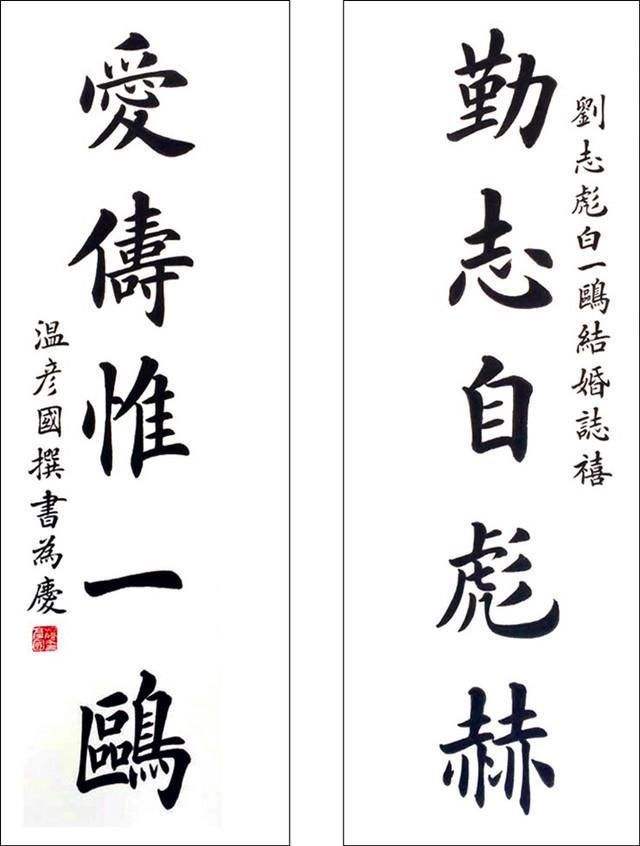 劉志彪白一鷗結婚誌禧
勤志自彪赫
愛儔惟一鷗
溫彥國撰書為慶